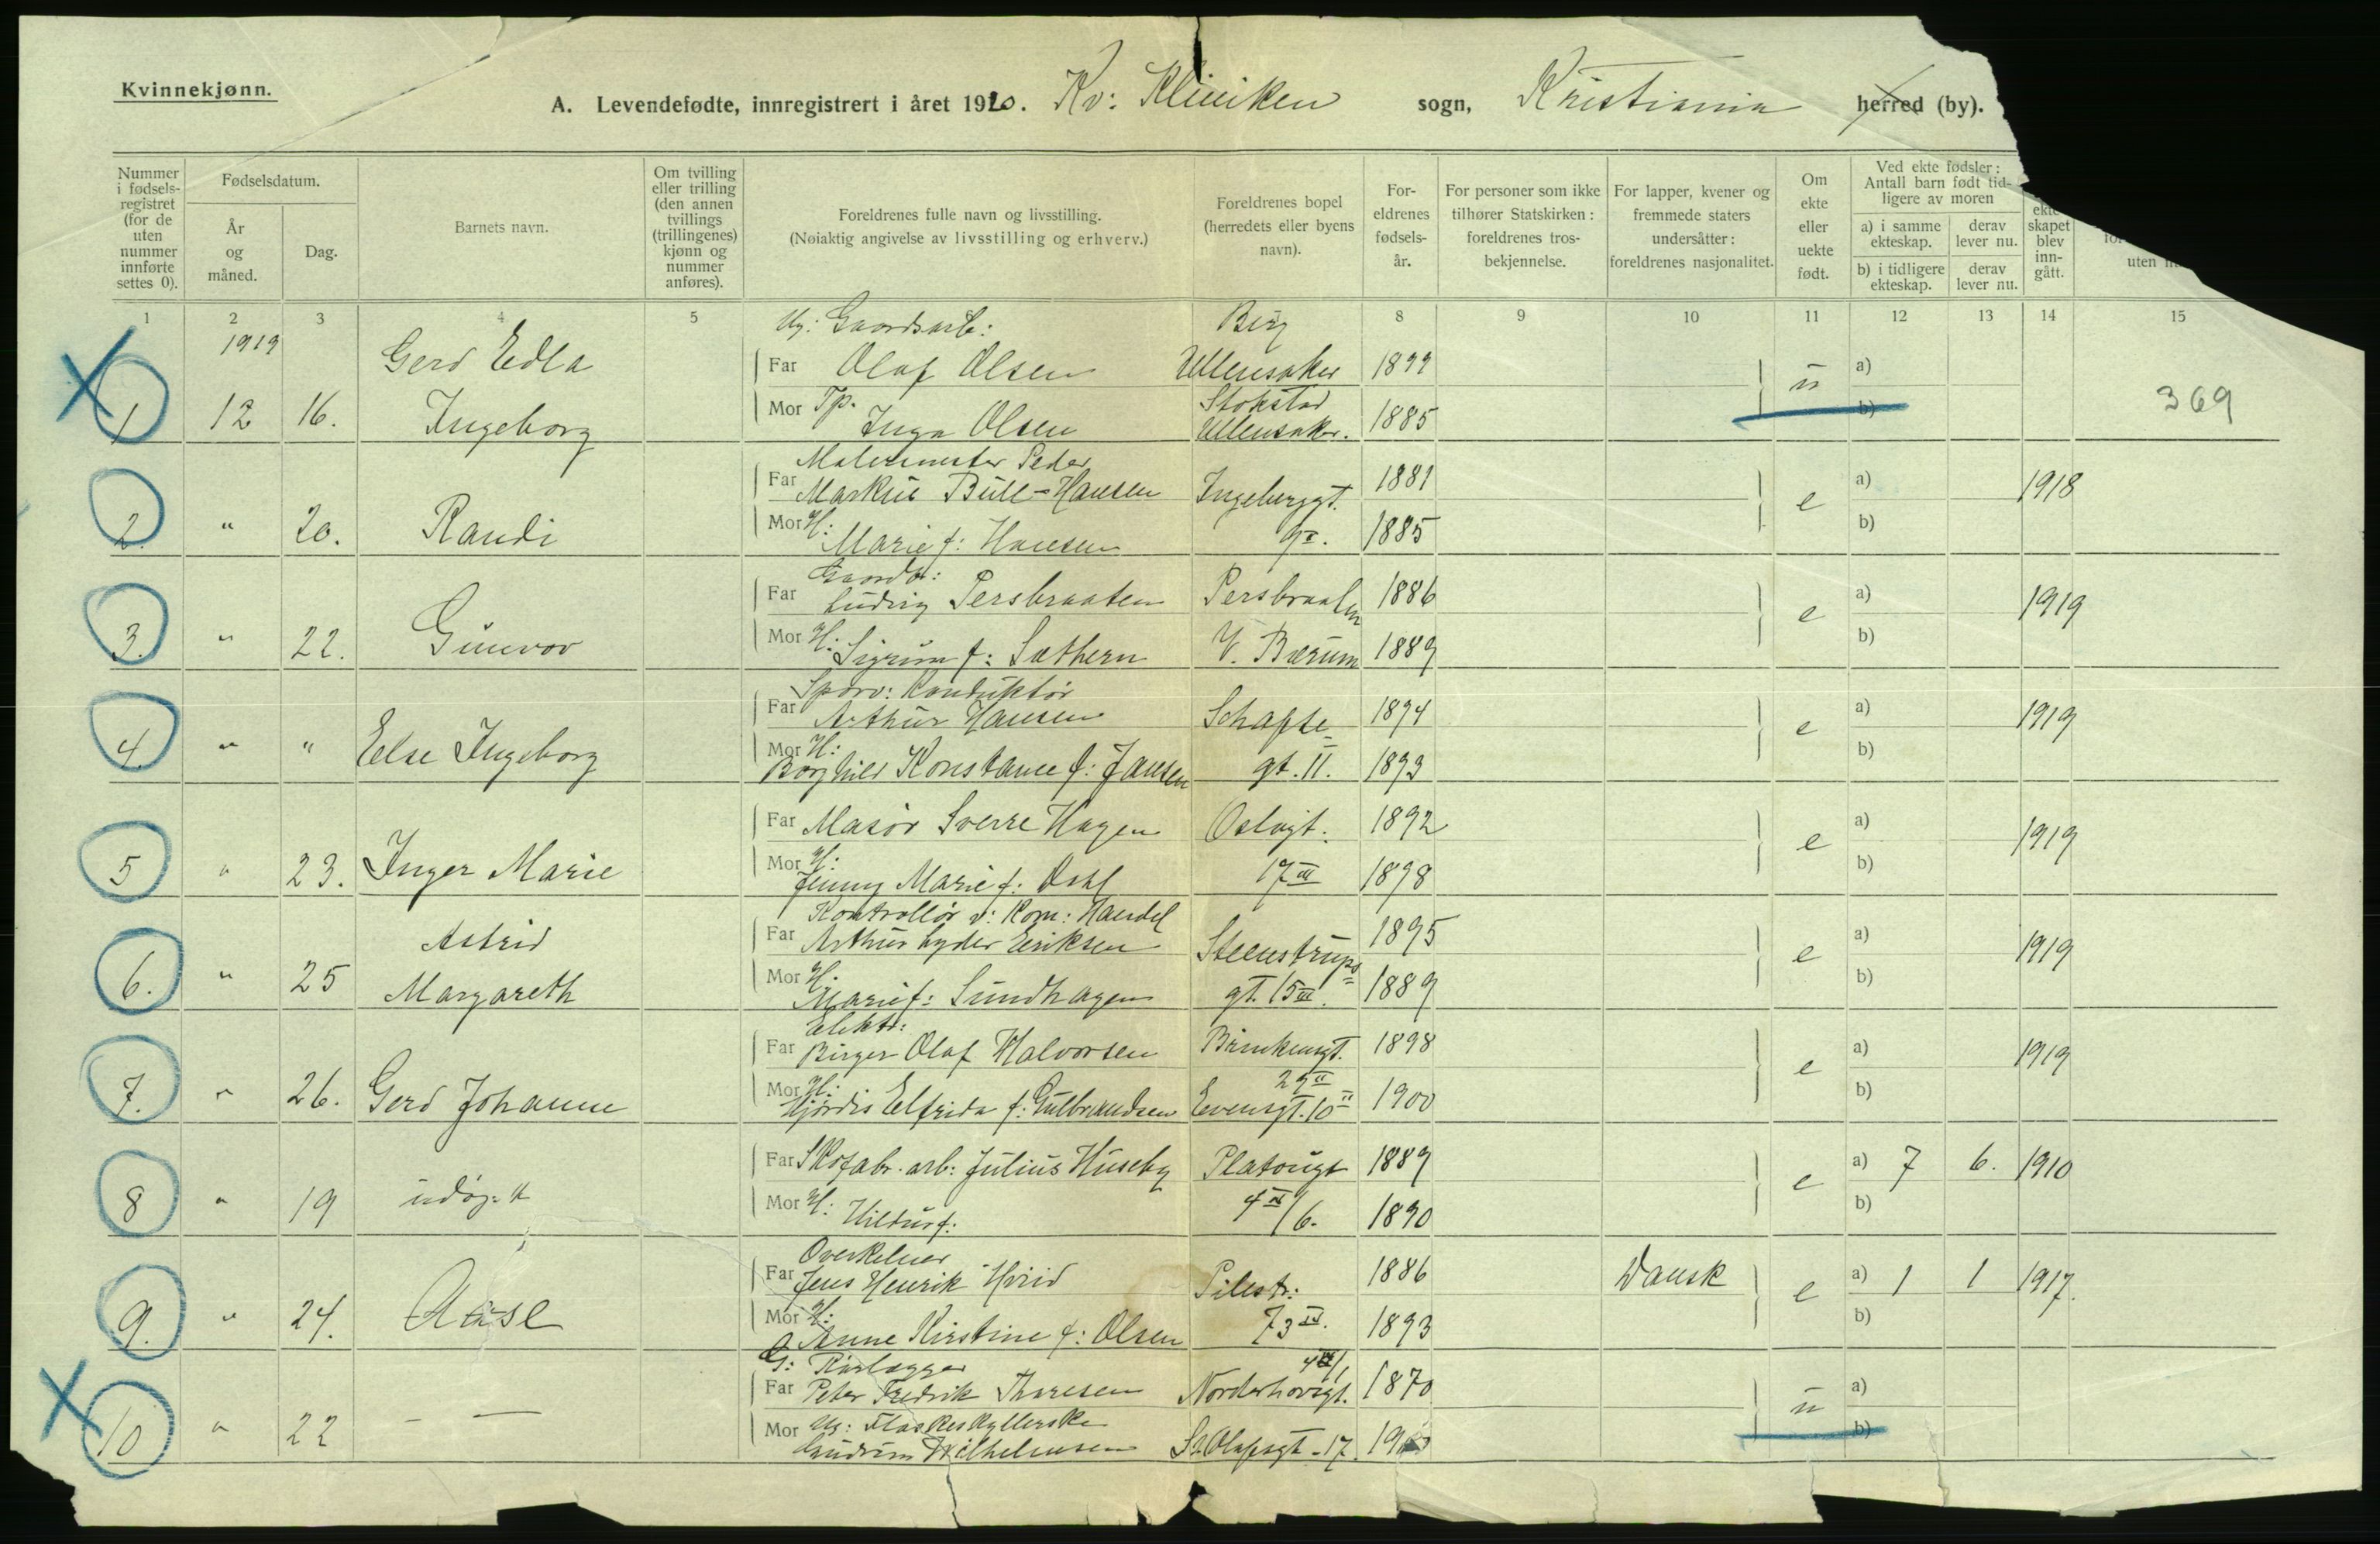 Kvinnekjønn.
A. Levendefødte, innregistrert i året 1920. Kv: Kliniken sogn, Kristiania herred (by).
Nummer i fødselsregistret (for de uten nummer innførte settes 0).
Fødselsdatum.
År og måned.
Dag.
Barnets navn.
Om tvilling eller trilling (den annen tvillings (trillingenes) kjønn og nummer anføres).
Foreldrenes fulle navn og livsstilling.
(Nøiaktig angivelse av livsstilling og erhverv.)
Foreldrenes bopel (herredets eller byens navn).
Foreldrenes fødselsår.
For personer som ikke tilhører Statskirken: foreldrenes trosbekjennelse.
For lapper, kvener og fremmede staters undersåtter: foreldrenes nasjonalitet.
Om ekte eller uekte født.
Ved ekte fødsler:
Antall barn født tidligere av moren
a) i samme ekteskap.
derav lever nu.
b) i tidligere ekteskap.
derav lever nu.
ekteskapet blev inngått.
uten
1 2 3 4 5 8 9 10 11 12 13 14 15
1919
Ug: Gaardsarb: Berg
Gerd Edla Far Olaf Olsen Ullensaker 1899 a)
1 12 16. Ingeborg Mor Tp. Inga Olsen Stokstad Ullensaker. 1885 u b) 369
Malermester Peder
Far Markus Bull-Hansen Ingeborggt. 1881 a) 1918
2. " 20. Randi Mor H: Marie f: Hansen 9 II. 1885 e b)
Gaardb:
Far Ludvig Persbraaten Persbraaten 1886 a) 1919
3. " 22. Gunvor Mor H: Sigrun f: Sæthern V. Bærum 1889 e b)
Sporv: Konduktør
Far Arthur Hansen Schafte- 1894 a) 1919
4. " " Else Ingeborg Mor H: Borghild Konstance f: Jansen gt. 11. 1893 e b)
Far Masør Sverre Hagen Oslogt. 1892 a) 1919
5 " 23. Inger Marie Mor H: Jenny Marie f: Dahl 17 III 1898 e b)
Kontrollør v: Kom: Handel
Astrid Far Arthur Lyder Eriksen Steenstrups= 1895 a) 1919
6. " 25 Margareth Mor H. Marie f: Sundhagen gt. 15 III. 1889 e b)
Elektr:
Far Birger Olaf Halvorsen Brinkensgt. 29 II 1898 a) 1919
7. " 26. Gerd Johanne Mor H: Hjørdis Elfrida f: Gulbrandsen Evensgt. 10 II 1900 e b)
Far Skofabr. arb: Julius Huseby Platougt 1889 a) 7 6. 1910
8 " 19 udøp: Mor H: Hildur f: 4 IV/6. 1890 e b)
Overkelner
Far Jens Henrik Hviid Pilestr: 1886 Dansk a) 1 1 1917.
9. " 24. Aase Mor H: Anne Kirstine f: Olsen 73 II. 1893 e b)
G: Rørlægger
Far Peter Fredrik Thoresen Norderhovsgt. 1870 a)
10 " 22 - — Mor Ug: Flaskeskyllerske Gudrun Wilhelmsen St. Olafsgt. 17. u b)